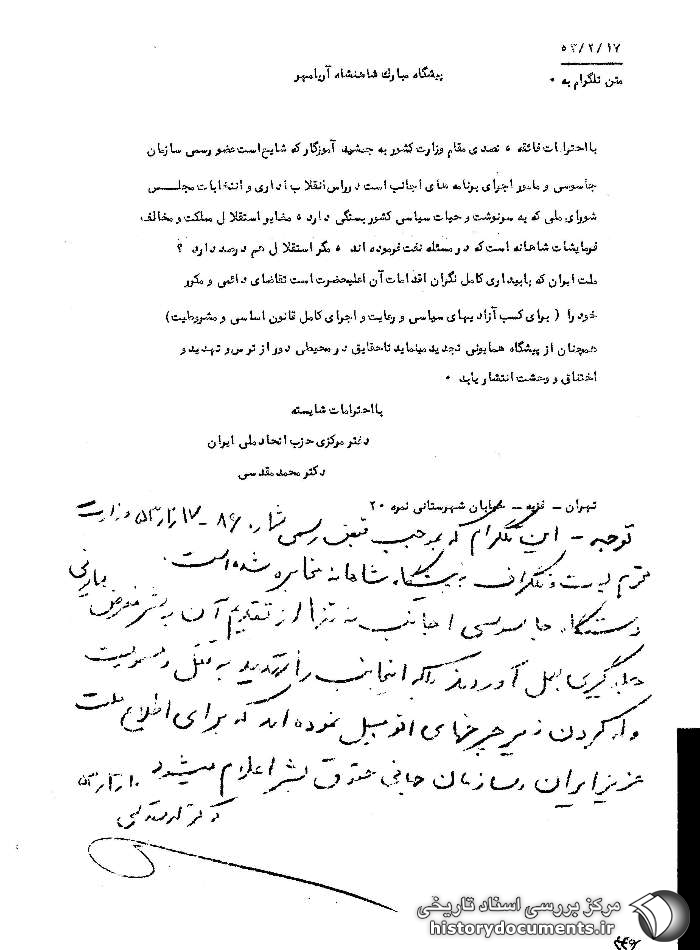 ۵۳/۲/۱۷
متن تلگرام به ۰
پیشگاه مبارك شاهنشاه آریامهر
با احترامات فائقه ۰ تصدی مقام وزارت کشور به جمشید آموزگار که شایع است عضو رسمی سازمان
جاسوسی و مامور اجرای برنامه های اجانب است در راس انقلاب اداری و انتخابات مجلس
شورای ملی که به سرنوشت و حیات سیاسی کشور بستگی دارد ۰ مغایر استقلال مملکت و مخالف
فرمایشات شاهانه است که در مسئله نفت فرموده اند ۰ مگر استقلال هم درصد دارد ؟
ملت ایران که با بیداری کامل نگران اقدامات آن اعلیحضرت است تقاضای دائمی و مکرر
خود را ( برای کسب آزادیهای سیاسی و رعایت و اجرای کامل قانون اساسی و مشروطیت)
همچنان از پیشگاه همایونی تجدید مینماید تا حقایق در محیطی دور از ترس و تهدید و
اختناق و وحشت انتشار یابد ۰
با احترامات شایسته
دفتر مرکزی حزب اتحاد ملی ایران
دکتر محمد مقدسی
تهران - خیابان شهرستانی نمره ۲۰
توجه - این تلگرام که بموجب قبض رسمی شماره ۸۶ - ۵۳/۲/۱۷ وزارت
پست و تلگراف به پیشگاه شاهانه مخابره شده است.
دستگاه جاسوسی اجانب نه تنها از تقدیم آن به
جلوگیری بعمل آوردند بلکه اینجانب را تهدید به قتل و
کردن زیر چرخهای اتومبیل نموده اند که برای اطلاع ملت
عزیز ایران و سازمان جهانی حقوق بشر اعلام میشود
دکتر مقدسی
مرکز بررسی اسناد تاریخی
historydocuments.ir